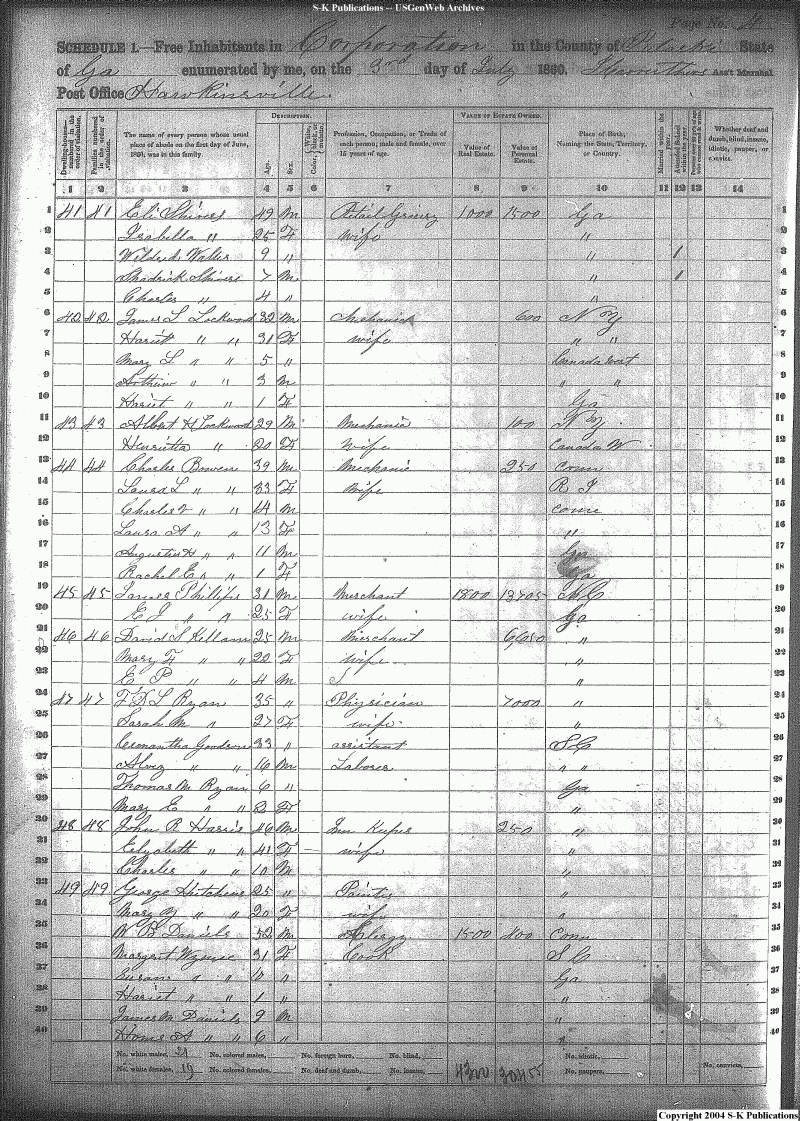 S-K Publications -- USGenWeb Archives
Page No. 20
SCHEDULE 1.—Free Inhabitants in Corporation in the County of Pulaski State
of Ga enumerated by me, on the 3rd day of July 1860. Ass't Marshal
Post Office Hawkinsville
DESCRIPTION. VALUE OF ESTATE OWNED.
Dwelling-houses—numbered in the order of visitation. Families numbered in the order of visitation. The name of every person whose usual place of abode on the first day of June, 1860, was in this family. Age. Sex. Color, White, black, or mulatto. Profession, Occupation, or Trade of each person, male and female, over 15 years of age. Value of Real Estate. Value of Personal Estate. Place of Birth, Naming the State, Territory, or Country. Married within the year. Attended School within the year. Whether deaf and dumb, blind, insane, idiotic, pauper, or convict.
1 2 3 4 5 6 7 8 9 10 11 12 13 14
1 41 41 Eli Shivers 49 M 1000 1500 Ga 1
2 Isabella " 25 F wife " 2
3 Walter 9 " " 1 3
4 Shadrick Shivers 7 M " 1 4
5 Charles " 4 " " 5
6 42 42 James L Lockwood 32 M Mechanick 600 N Y 6
7 Hariet " " 31 F wife " " 7
8 Mary L " " 5 " Canada West 8
9 Arthur " " 3 M " " 9
10 Hariet " " 1 F Ga 10
11 43 43 Albert H Lockwood 29 M Mechanic 100 N Y 11
12 Henrietta " 20 F Wife Canada W 12
13 44 44 Charles Bowen 39 M Mechanic 250 Conn 13
14 Laura L " " 33 F Wife R I 14
15 Charles " " 14 M Conn 15
16 Laura A " " 13 F " 16
17 Augustus H " " 11 M Ga 17
18 Rachel E " " 1 F Ga 18
19 45 45 James Phillips 31 M Merchant 1800 13705 N C 19
20 E J " " 25 F wife Ga 20
21 46 46 David S Kellam 25 M Merchant 6,050 " 21
22 Mary F " " 22 F wife " 22
23 E P " " 4 M " 23
24 47 47 T D L Ryan 35 " Physician 7000 " 24
25 Sarah M " 27 F wife " 25
26 33 " assistant S C 26
27 " " 16 M Laborer " " 27
28 Thomas M Ryan 6 " Ga 28
29 Mary E " " 2 F " 29
30 48 48 John R Harris 46 M Inn Keeper 250 " 30
31 Elizabeth " " 41 F wife " 31
32 Charles " " 10 M " 32
33 49 49 George Hutchins 25 " Painter " 33
34 Mary " " 20 F wife " 34
35 W B Daniels 52 M 1500 400 Conn 35
36 Margaret 31 F Cook S C 36
37 " " " Ga 37
38 Hariet " " 1 " " 38
39 James M Daniels 9 M " 39
40 A " " 6 " " 40
No. white males, 21 No. colored males, No. foreign born, No. blind, No. idiotic,
No. white females, 19 No. colored females, No. deaf and dumb, No. insane, 4300 30455 No. paupers, No. convicts,
Copyright 2004 S-K Publications